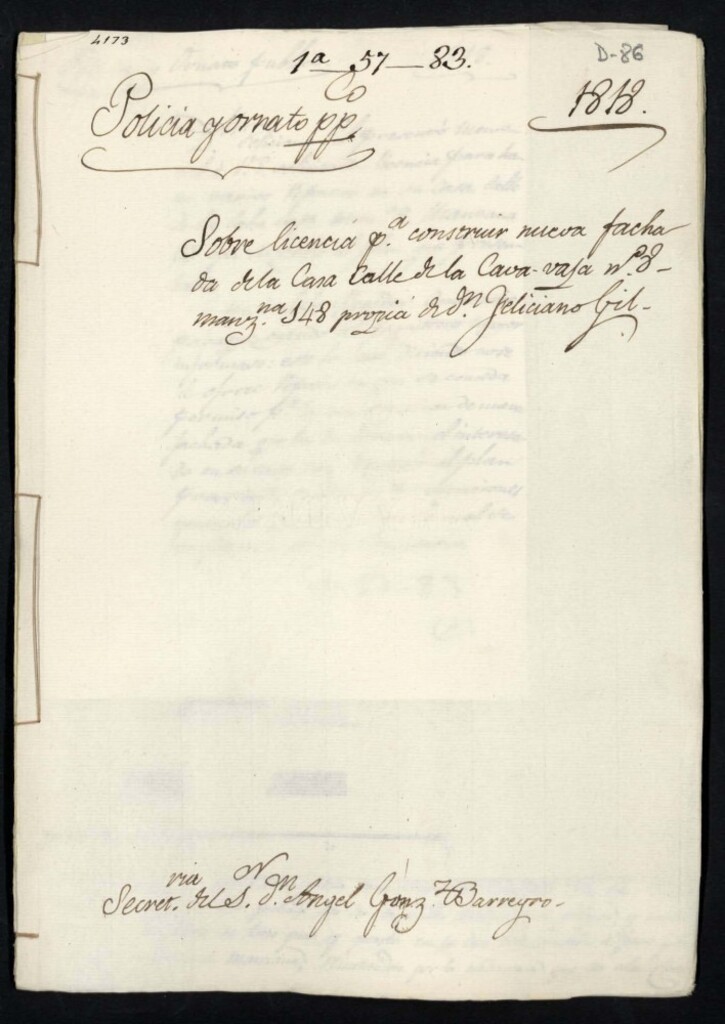 4173
1a 57—83.
D-86
Policia y ornato pp.co
1818.
Sobre licencia p.a construir nueva facha-
da dela Casa Calle de la Cava-vaja n.o 8-
manz.na 148 propia de d.n Feliciano Gil-
Secret.ria del S.r d.n Angel Gonz.z Barreyro-